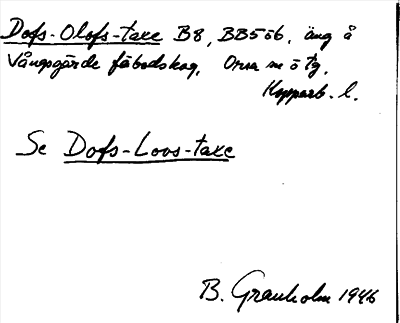 Dofs-Olofs-taxe B8, BB5 öb, äng å
Vångsgärde fäbodskog, Orsa sn o tg,
Kopparb. l.
Se Dofs-Loos-taxe
B. Granholm 1946